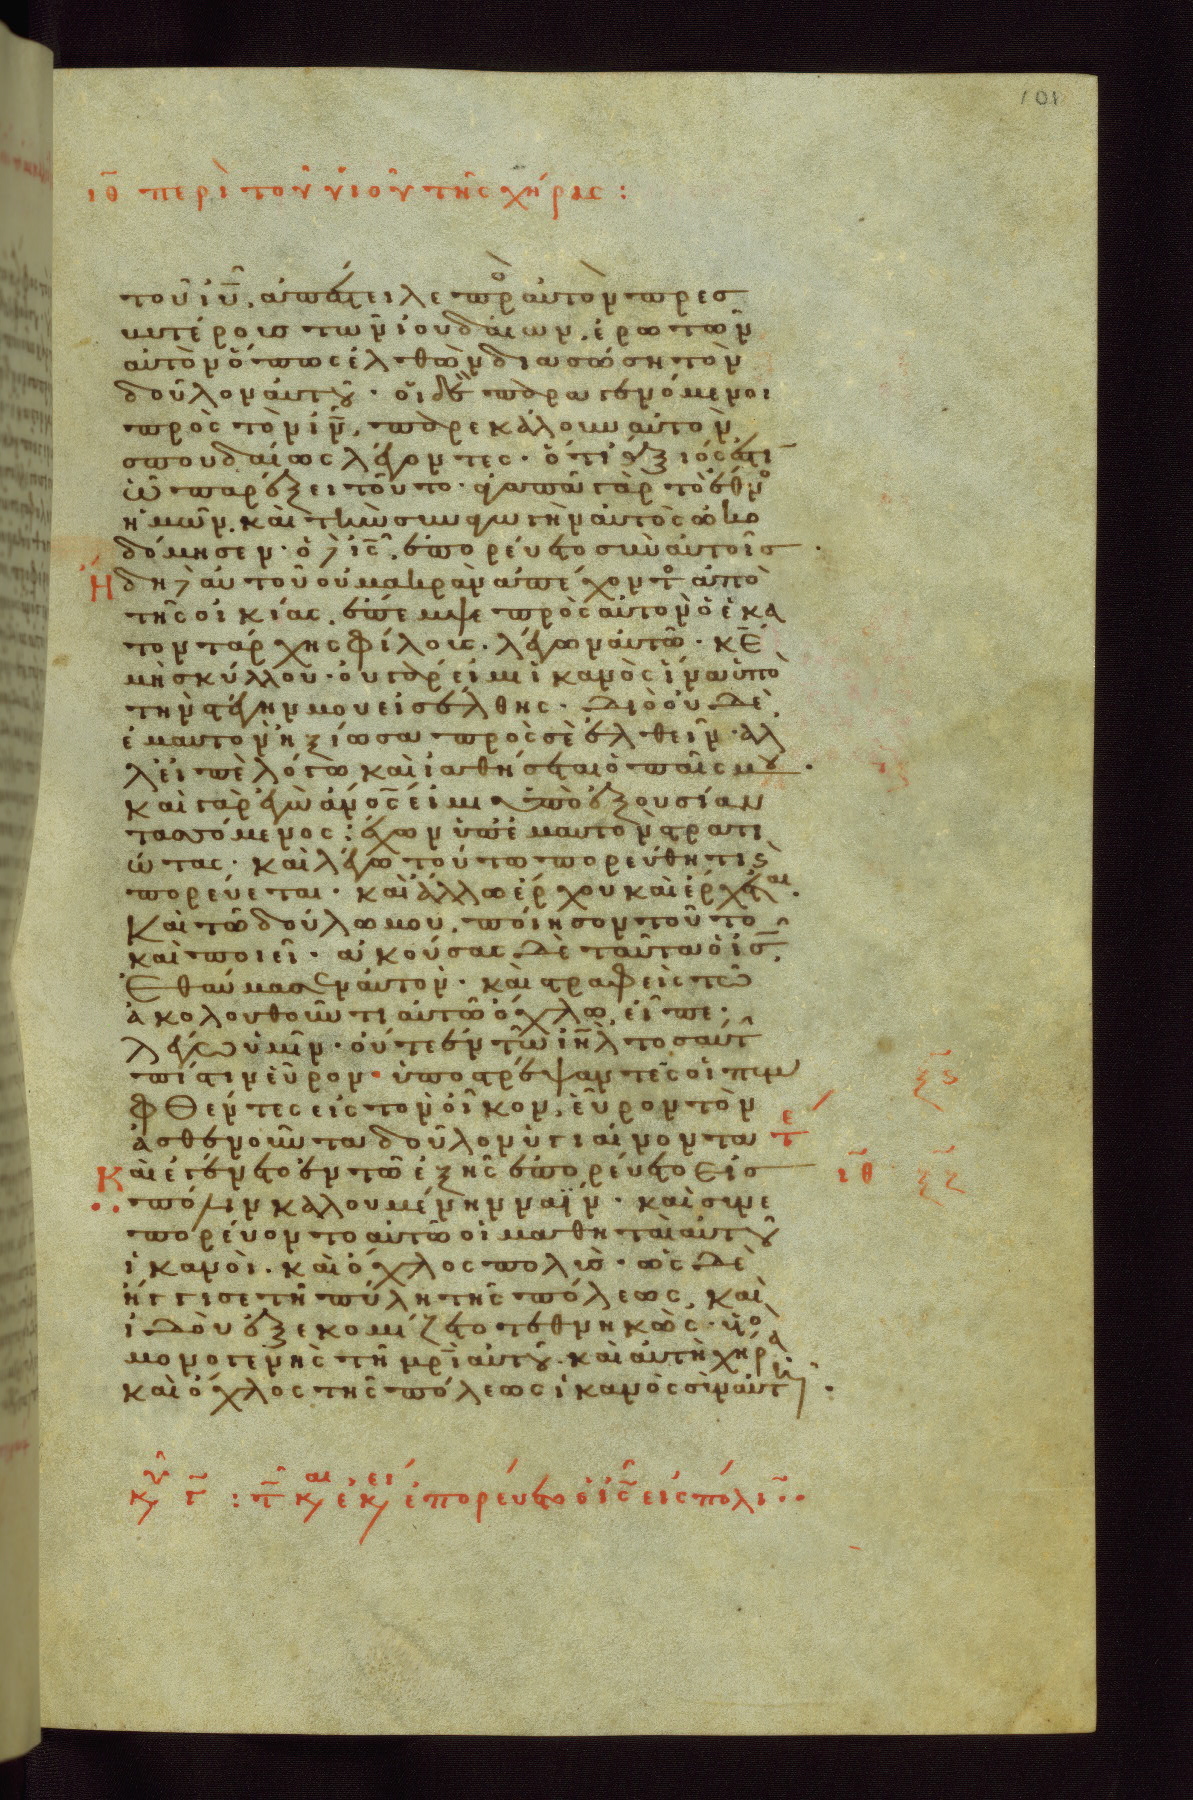 101
ιθ περὶ τοῦ υἱοῦ τῆς χήρας :
τοῦ ἰῦ, ἀπέστειλε πρὸς αὐτὸν πρεσ
βυτέρους τῶν ἰουδαίων, ἐρωτῶν
αὐτὸν ὅπως ἐλθὼν διασώση τὸν
δοῦλον αὐτοῦ · οἱ δὲ παραγενόμενοι
πρὸς τὸν ἰν, παρεκάλουν αὐτὸν
σπουδαίως λέγοντες · ὅτι ἄξιός ἐστιν
ὧ παρέξει τοῦτο · ἀγαπᾶ γὰρ τὸ ἔθνος
ἡμῶν, καὶ τὴν συναγωγὴν αὐτὸς ὠκο
δόμησεν · ὁ δὲ ις, ἐπορεύετο σὺν αὐτοῖς ·
Ἤδη δὲ αὐτοῦ οὐ μακρὰν ἀπέχοντος ἀπὸ
τῆς οἰκίας, ἔπεμψε πρὸς αὐτὸν ὁ ἑκα
τοντάρχης φίλους · λέγων αὐτῶ · κε
μὴ σκύλλου · οὐ γάρ εἰμι ἱκανὸς ἵνα ὑπὸ
τὴν στέγην μου εἰσέλθης · διὸ οὐδὲ
ἐμαυτὸν ἠξίωσα πρὸς σὲ ἐλθεῖν · ἀλ
λ' εἰπὲ λόγω καὶ ἰαθήσεται ὁ παῖς μου ·
καὶ γὰρ ἐγὼ ἀνός εἰμι ὑπὸ ἐξουσίαν
τασσόμενος : ἔχων ὑπ' ἐμαυτὸν στρατι
ώτας · καὶ λέγω τούτω πορεύθητι
πορεύεται · καὶ ἄλλω ἔρχου καὶ ἔρχεται ·
Καὶ τῶ δούλω μου, ποίησον τοῦτο
καὶ ποιεῖ · ἀκούσας δὲ ταῦτα ὁ ις,
Ἐθαύμασεν αὐτόν · καὶ στραφεὶς τῶ
ἀκολουθοῦντι αὐτῶ ὄχλω, εἶπε ·
λέγω ὑμῖν · οὔτε ἐν τῶ ιηλ τοσαύτην
πίστιν εὗρον · ὑποστρέψαντες οἱ πεμ
φθέντες εἰς τὸν οἶκον, εὗρον τὸν
ἀσθενοῦντα δοῦλον ὑγιαίνοντα
Καὶ ἐγένετο ἐν τῶ ἑξῆς ἐπορεύετο εἰς
πόλιν καλουμένην ναΐν · καὶ συνε
πορεύοντο αὐτῶ οἱ μαθηταὶ αὐτοῦ
ἱκανοὶ · καὶ ὄχλος πολύς · ὡς δὲ
ἤγγισε τῆ πύλη τῆς πόλεως, καὶ
ἰδοὺ ἐξεκομίζετο τεθνηκὼς · υἱὸς
μονογενὴς τῆ μρὶ αὐτοῦ · καὶ αὐτὴ χήρα
καὶ ὄχλος τῆς πόλεως ἱκανὸς σὺν αὐτῆ ·
ξς
τε
ιθ ξζ
κυ γ : τ κ ἐκει ἐπορεύετο ὁ ις εἰς πόλιν